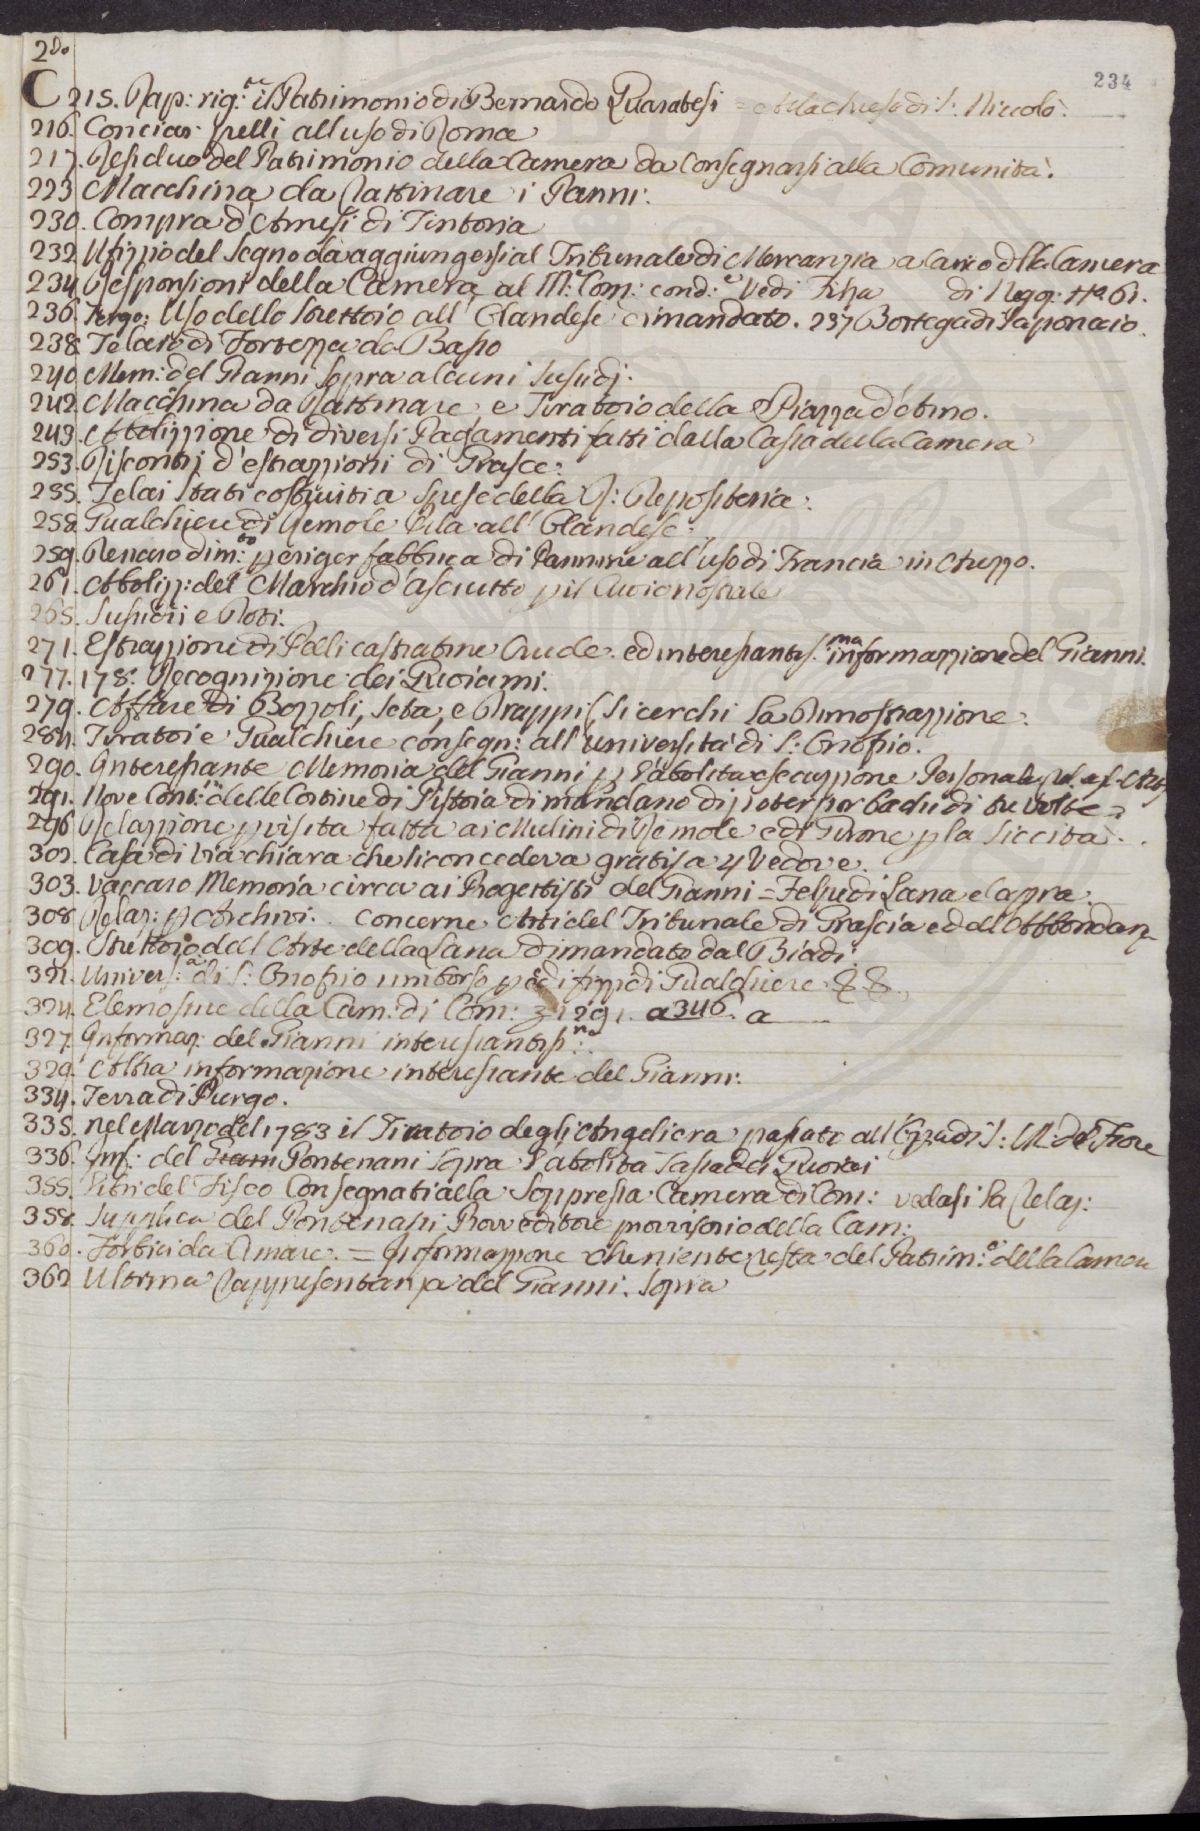 2do
234
C 215. Rap: rig:te il Patrimonio di Bernardo Quaratesi = e della chiesa di S: Niccolò.
216. Conciar pelli all uso di Roma
217. Residuo del Patrimonio della Camera da Consegnarsi alla Comunità.
223 Macchina da Rattinare i Panni.
230. Compra d'Arnesi di Tintoria
232 Ufizzio del Segno da aggiungersi al Tribunale di Mercanzia a carico della Camera
234 Responsioni della Camera al M:e Com: cond:e Vedi Filza di Negg: No. 61.
236. Tergo: Uso dello Strettoio all'Olandese dimandato. 237 Bottega di Saponaio.
238. Telaro di Fortezza da Basso
240. Mem: del Gianni sopra alcuni susidj.
242. Macchina da Rattinare e Tiratoio della Piazza d'Arno.
243. Abolizzione di diversi Pagamenti fatti dalla Cassa della Camera
253. Riscontri d'estrazzioni di Grasce.
255. Telai Stati costruiti a Spese della R: Depositeria.
258. Gualchiere di Remole Pila all'Olandese.
259. Renard dim:to p eriger fabbrica di Pannine all'uso di Francia in Arezzo.
261. Abolizz: del Marchio d'Asciutto p il Cuoio nostrale
265. Susidii e Doti.
271. Estrazzione di Pelli castratine Crude. ed interessantis:ma informazzione del Gianni.
277. 178. Recognizione dei Quoiami.
279. Affare di Bozzoli, Seta, e Drappi, si cerchi la Dimostrazzione.
284. Tiratoi e Gualchiere consegn: all'Università di S: Onofrio.
290. Interessante Memoria del Gianni p l'abolita esecuzzione Personale
291. Nove Cont:ni delle Cortine di Pistoia dimandano di poter por bachi di tre volte
296 Relazzione p visita fatta ai Mulini di Remole e di Girone p la siccità.
302. Casa di Via chiara che si concedeva gratis a 4 Vedove.
303. Vaccaro Memoria circa ai Progettisti del Gianni = Felpe di Lana e Capra.
308 Relaz: p Archivi. Concerne Atti del Tribunale di Grascia ed all Abbondanz
309. Strettoio dell Arte della Lana dimandato dal Biadi.
321. Univers:à di S: Onofrio rimborso p edifizzi di Gualchiere
324. Elemosine della Cam: di Com: 291. a 346. a
327. Informaz: del Gianni interessantiss:ma
329. Altra informazione interessante del Gianni.
334. Terra di Purgo.
335. nel Marzo del 1783 il Tiratoio degli Angeli era passato all'Opza di S: M: del Fiore
336. Inf: del Giann Pontenani sopra l'abolita Tassa dei Quoiai
355. Libri del Fisco Consegnati alla Soppressa Camera di Com: vedasi la Relaz:
358. Supplica del Pontenani Provveditore provvisorio della Cam:
360. Forbici da Cimare. = Informazzione che niente resta del Patrim:o della Camera
362 Ultima Rappresentanza del Gianni. Sopra